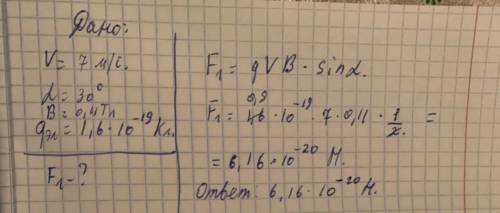 Дано:
V = 7 м/с.
α = 30°
B = 0,4 Тл
qэл = 1,6 · 10⁻¹⁹ Кл.
Fл - ?
Fл = qVB · sinα.
0,8
Fл = 1,6 · 10⁻¹⁹ · 7 · 0,11 · 1/2 =
= 6,16 · 10⁻²⁰ Н.
Ответ: 6,16 · 10⁻²⁰ Н.